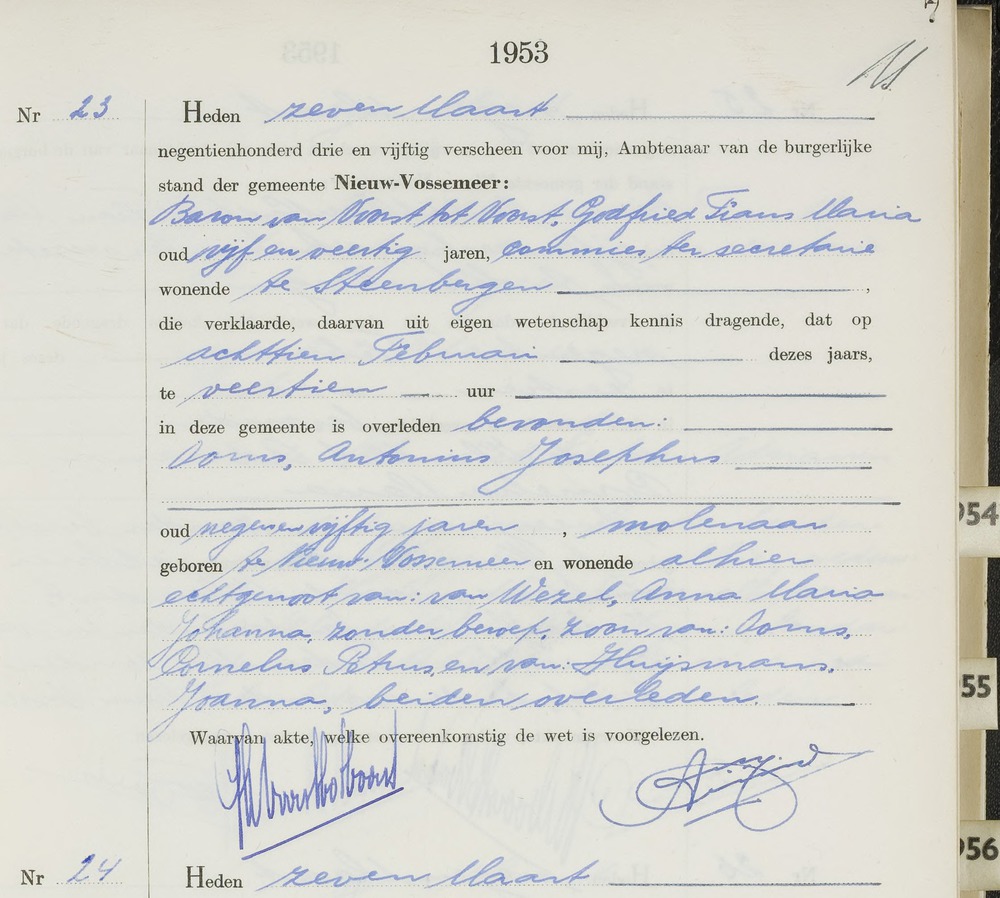 1953
Nr 23 Heden zeven Maart
negentienhonderd drie en vijftig verscheen voor mij, Ambtenaar van de burgerlijke
stand der gemeente Nieuw-Vossemeer:
Baron van Voorst tot Voorst, Godfried Frans Maria
oud vijf en veertig jaren, commies ter secretarie
wonende te Steenbergen ,
die verklaarde, daarvan uit eigen wetenschap kennis dragende, dat op
achttien Februari dezes jaars,
te veertien uur
in deze gemeente is overleden bevonden:
Ooms, Antonius Josephus
oud negenenvijftig jaren , molenaar
geboren te Nieuw-Vossemeer en wonende alhier
echtgenoot van: van Wezel, Anna Maria
Johanna, zonder beroep, zoon van: Ooms,
Cornelus Petrus, en van: Huijsmans,
Joanna, beiden overleden.
Waarvan akte, welke overeenkomstig de wet is voorgelezen.
Nr 24 Heden zeven Maart
954
55
956